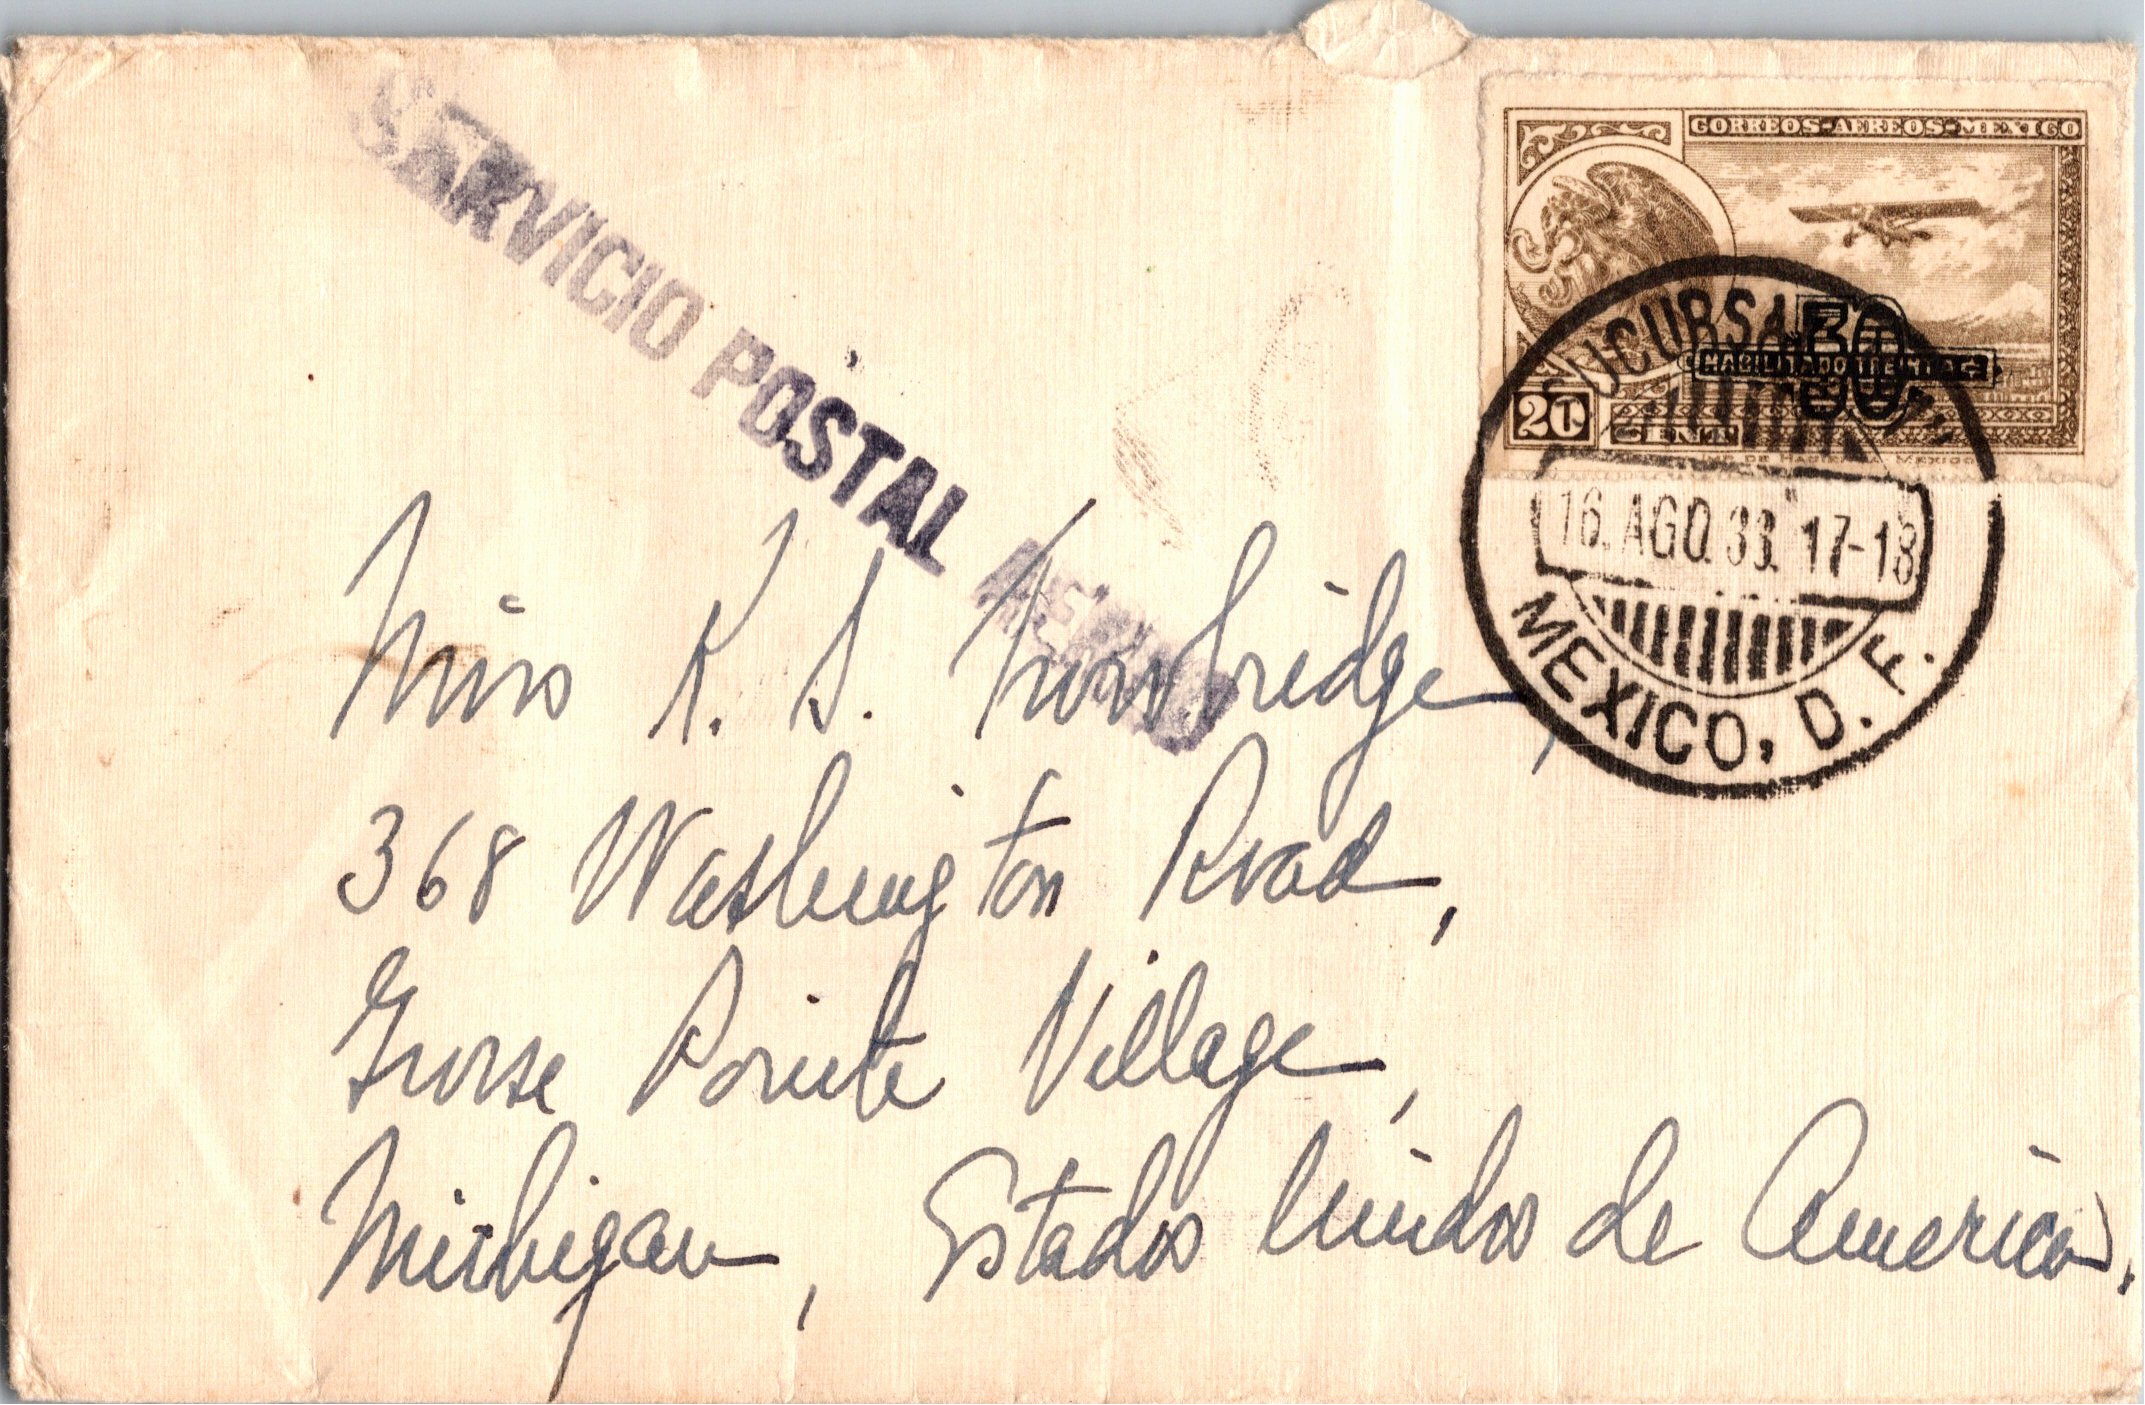 SERVICIO POSTAL AEREO
CORREOS-AEREOS-MEXICO
30
HABILITADO
20
CENT
SUCURSAL
16. AGO. 33. 17-18
MEXICO, D. F.
Miss K. S. Trowbridge,
368 Washington Road,
Grosse Pointe Village,
Michigan, Estados Unidos de America.